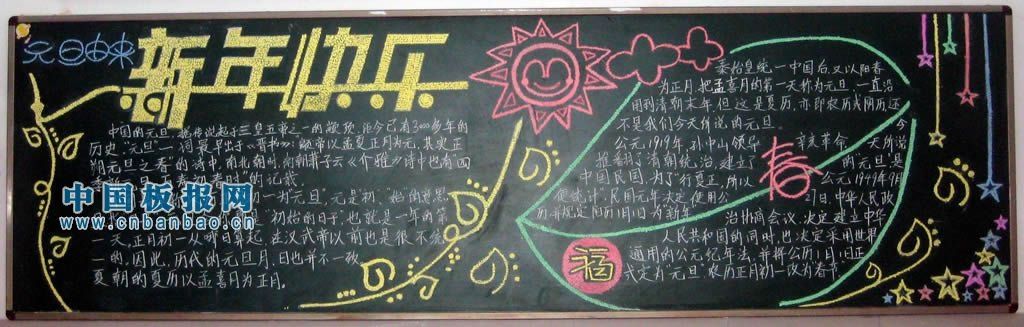 元旦由来
新年快乐
中国的元旦,据传说起于三皇五帝之一的颛顼,距今已有3000多年的
历史."元旦"一词最早出于《晋书》:"颛帝以孟夏正月为元,其实正
朔元旦之春"的诗中.南北朝时,南朝萧子云《介雅》诗中也有"四
的记载
一为元旦",元是初、始的意思,
"初始的日子"也就是一年的第
一天.正月初一从哪日算起,在汉武帝以前也是很不统
一的,因此,历代的元旦月、日也并不一致.
夏朝的夏历以孟喜月为正月.
中国板报网
www.cnbanbao.cn
秦始皇统一中国后,又以阳春
为正月.把孟喜月的第一天称为元旦,一直沿
用到清朝末年.但这是夏历,亦即农历或阴历,还
不是我们今天所说的元旦.
公元1919年,孙中山领导
辛亥革命
推翻了清朝统治,建立了
中国民国.为了"行夏正,所以
便统计",民国元年决定使用公
历,并规定阳历1月1日为"新年"
春
今
天所说
的"元旦"是
公元1949年9月
21日,中华人民政
治协商会议,决定建立中华
人民共和国的同时,也决定采用世界
通用的公元纪年法,并将公历1月1日正
式定为"元旦",农历正月初一改为"春节".
福